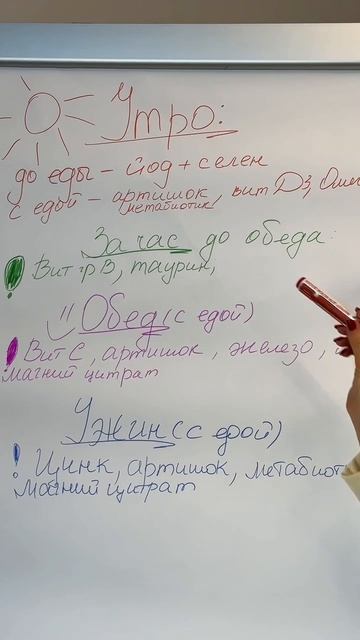 Утро:
до еды - йод + селен
с едой - артишок, вит D3, Омег
(метабиотик)
За час до обеда:
! Вит гр В, таурин,
Обед (с едой)
! Вит С, артишок, железо,
магний цитрат
Ужин (с едой)
! Цинк, артишок, метабиот
магний цитрат